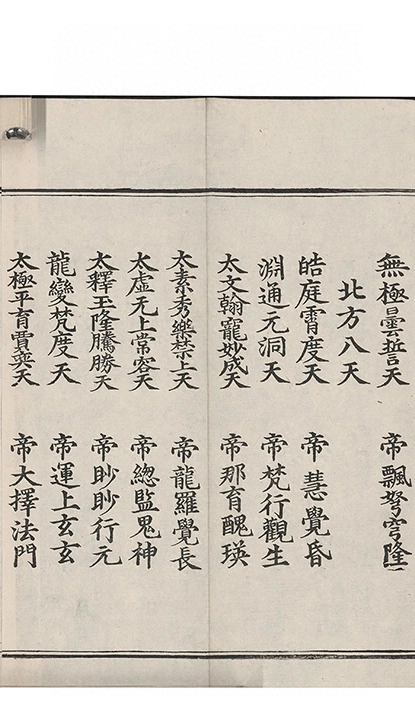 無極曇誓天 帝飄弩穹隆
北方八天
皓庭霄度天 帝慧覺昏
淵通元洞天 帝梵行觀生
太文翰寵妙成天 帝那育醜瑛
太素秀樂禁上天 帝龍羅覺長
太虛无上常容天 帝總監鬼神
太釋玉隆騰勝天 帝眇眇行元
龍變梵度天 帝運上玄玄
太極平育賈奕天 帝大擇法門